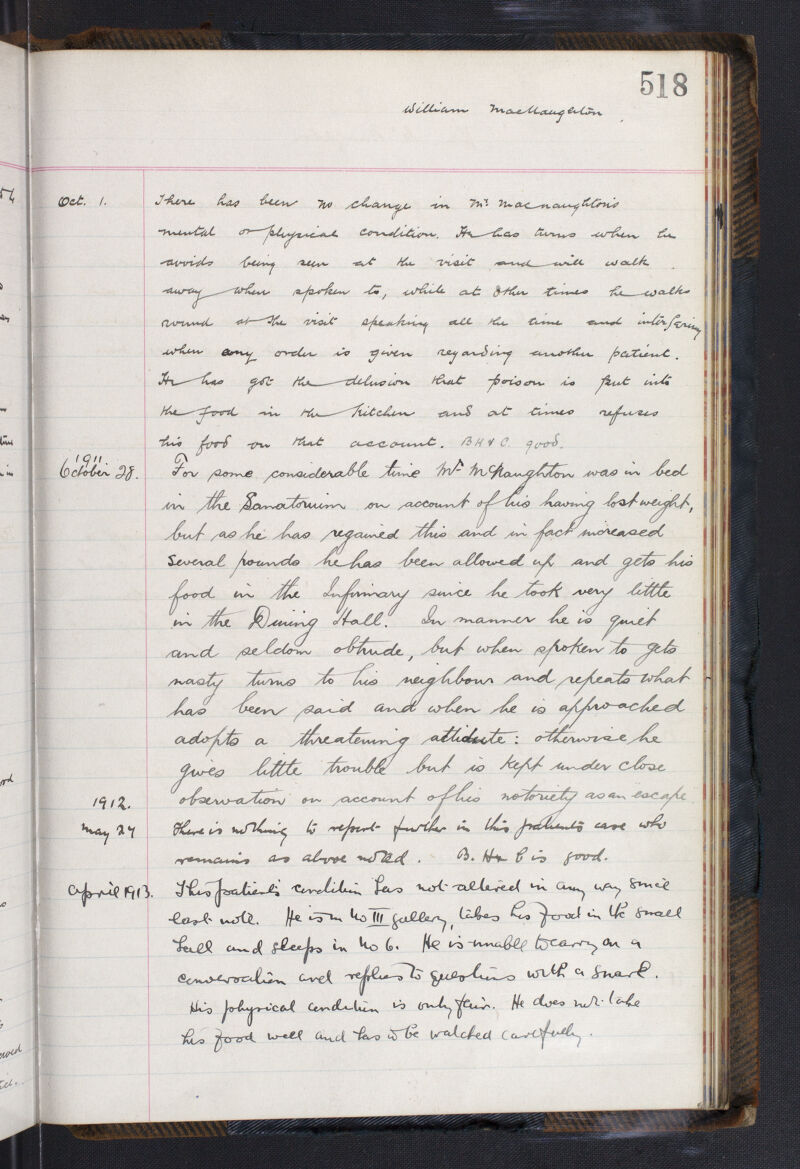 518
William MacNaughton
Oct. 1.
There has been no change in Mr. Macnaughton's
mental or physical condition. He has turns when he
avoids being seen at the visit and will walk
away when spoken to, while at other times he walks
round at the visit speaking all the time and interfering
when any order is given regarding another patient.
He has got the delusion that poison is put into
the food in the kitchen and at times refuses
his food on that account. B H & C. good.
1911
October 28.
For some considerable time Mr. McNaughton was in bed
in the Sanatorium on account of his having lost weight,
but as he has regained this and in fact increased
several pounds he has been allowed up and gets his
food in the Infirmary since he took very little
in the Dining Hall. In manner he is quiet
and seldom obtrude, but when spoken to gets
nasty turns to his neighbour and repeats what
has been said and when he is approached
adopts a threatening attidute: otherwise he
gives little trouble but is kept under close
observation on account of his notoriety as an escape.
1912.
May 27
There is nothing to report further in this patients case who
remains as above noted. B. H & C is good.
April 1913.
This patient's condition has not altered in any way since
last note. He is in No III gallery, takes his food in the small
hall and sleeps in No 6. He is unable to carry on a
conversation and replies to questions with a snarl.
His physical condition is only fair. He does not take
his food well and has to be watched carefully.